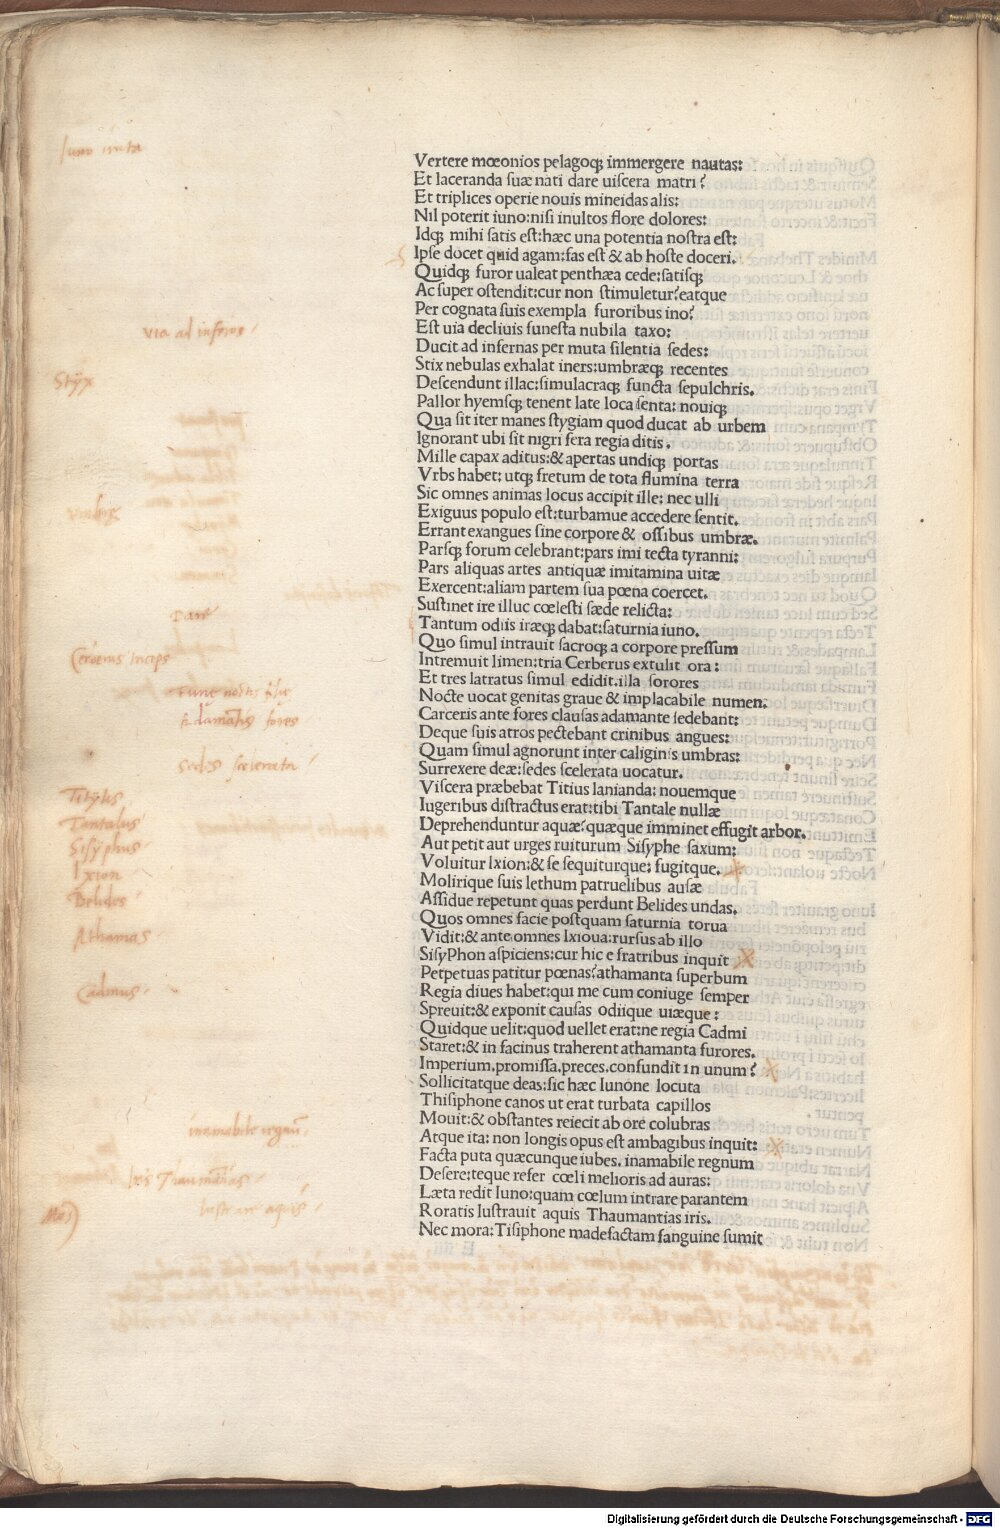 Iuno irata
Vertere mœonios pelagoqꝫ immergere nautas:
Et laceranda suæ nati dare uiscera matri?
Et triplices operie nouis mineidas alis:
Nil poterit iuno:nisi inultos flore dolores:
Idqꝫ mihi satis est:hæc una potentia nostra est:
Ipse docet quid agam:fas est & ab hoste doceri.
Quidqꝫ furor ualeat penthæa cede:satisqꝫ
Ac super ostendit:cur non stimuletur?eatque
Per cognata suis exempla furoribus ino?
via ad inferos
Est uia decliuis funesta nubila taxo:
Ducit ad infernas per muta silentia sedes:
Styx
Stix nebulas exhalat iners:umbræqꝫ recentes
Descendunt illac:simulacraqꝫ functa sepulchris.
Pallor hyemsqꝫ tenent late loca senta: nouiqꝫ
Qua sit iter manes stygiam quod ducat ab urbem
Ignorant ubi sit nigri fera regia ditis.
Mille capax aditus:& apertas undiqꝫ portas
Vrbs habet: utqꝫ fretum de tota flumina terra
Sic omnes animas locus accipit ille: nec ulli
Exiguus populo est:turbamue accedere sentit.
Errant exangues sine corpore & ossibus umbræ.
Parsqꝫ forum celebrant:pars imi tecta tyranni:
Pars aliquas artes antiquæ imitamina uitæ
Exercent:aliam partem sua pœna coercet.
Sustinet ire illuc cœlesti sæde relicta:
Tantum odiis iræqꝫ dabat:saturnia iuno.
Quo simul intrauit sacroqꝫ a corpore pressum
Intremuit limen:tria Cerberus extulit ora:
Et tres latratus simul edidit.illa sorores
Nocte uocat genitas graue & implacabile numen.
Carceris ante fores clausas adamante sedebant:
Deque suis atros pectebant crinibus angues:
Quam simul agnorunt inter caliginis umbras:
sedes scelerata
Surrexere deæ:sedes scelerata uocatur.
Viscera præbebat Titius lanianda: nouemque
Iugeribus distractus erat:tibi Tantale nullæ
Tantalus
Deprehenduntur aquæ?quæque imminet effugit arbor.
Sisyphus
Aut petit aut urges ruiturum Sisyphe saxum:
Ixion
Voluitur Ixion:& se sequiturque: fugitque.
Molirique suis lethum patruelibus ausæ
Belides
Assidue repetunt quas perdunt Belides undas.
Quos omnes facie postquam saturnia torua
Athamas
Vidit:& ante omnes Ixioua:rursus ab illo
SisyPhon aspiciens:cur hic e fratribus inquit
Petpetuas patitur pœnas?athamanta superbum
Cadmus
Regia diues habet:qui me cum coniuge semper
Spreuit:& exponit causas odiique uiæque:
Quidque uelit:quod uellet erat:ne regia Cadmi
Staret:& in facinus traherent athamanta furores.
Imperium.promissa.preces.confundit in unum?
Sollicitatque deas:sic hæc Iunone locuta
Thisiphone canos ut erat turbata capillos
Mouit:& obstantes reiecit ab ore colubras
Atque ita: non longis opus est ambagibus inquit:
Facta puta quæcunque iubes. inamabile regnum
Desere:teque refer cœli melioris ad auras:
Læta redit Iuno:quam cœlum intrare parantem
lustrare aquis
Roratis lustrauit aquis Thaumantias iris.
Nec mora: Tisiphone madefactam sanguine sumit
Digitalisierung gefördert durch die Deutsche Forschungsgemeinschaft - DFG